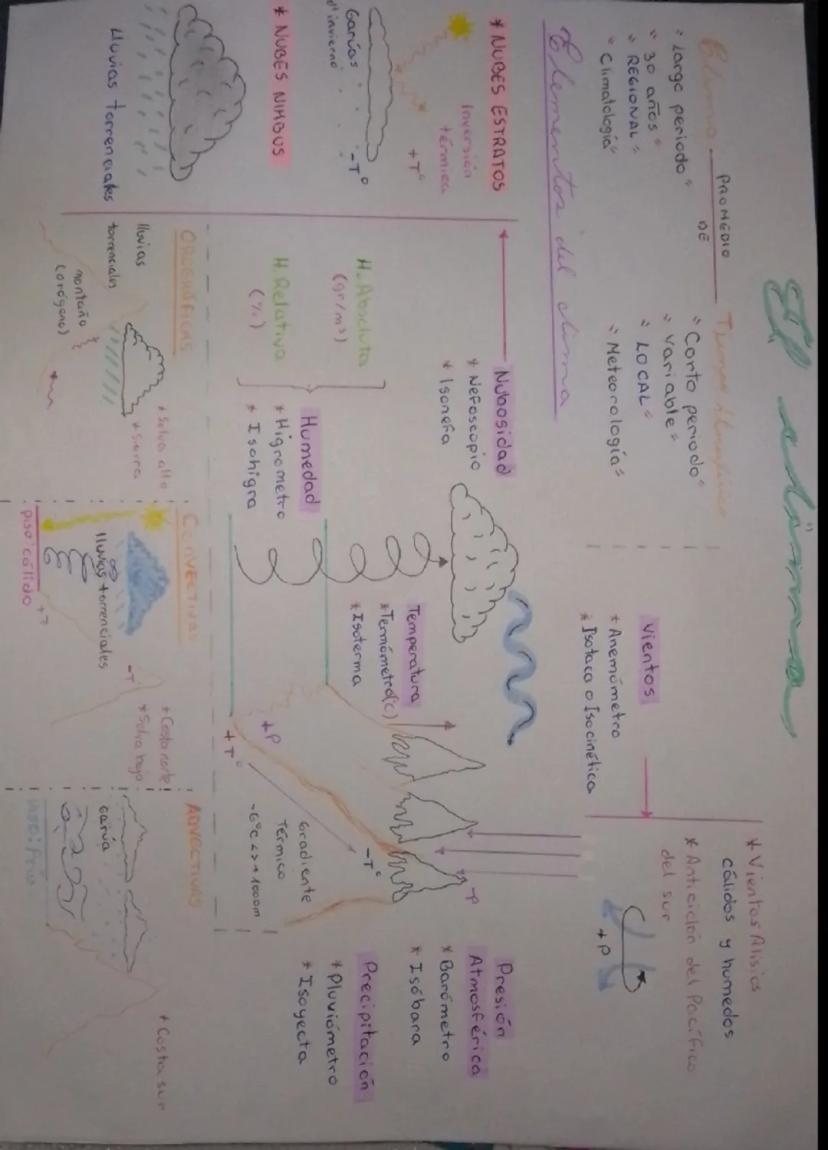 El clima
Clima
PROMEDIO
DE
Tiempo
" Largo periodo "
" 30 años "
" REGIONAL "
" Climatología "
" Corto periodo "
" Variable "
" LOCAL "
" Meteorología "
Elementos del clima
Vientos
* Anemómetro
* Isotaca o Isocinética
* Vientos Alisios
cálidos y humedos
* Anticiclón del Pacífico
del sur
+P
* NUBES ESTRATOS
Inversión
térmica
+T°
Garúas
d'invierno
-T°
* NUBES NIMBUS
Lluvias torrenciales
Nubosidad
* Nefoscopio
* Isonefa
H. Absoluta
(gr/m³)
H. Relativa
(%)
Humedad
* Higrometro
* Isohigra
Temperatura
* Termómetro(C)
* Isoterma
+P
+T°
-P
-T°
Gradiente
térmico
-6°C <> +1000m
Presión
Atmosférica
* Barómetro
* Isóbara
Precipitación
* Pluviómetro
* Isoyecta
OROGRÁFICAS
lluvias
torrenciales
montaña
(orógeno)
* Selva alta
* Sierra
CONVECTIVAS
lluvias torrenciales
piso cálido
+T
-T
* Costa norte
* Selva baja
ADVECTIVAS
Garúa
* Costa sur